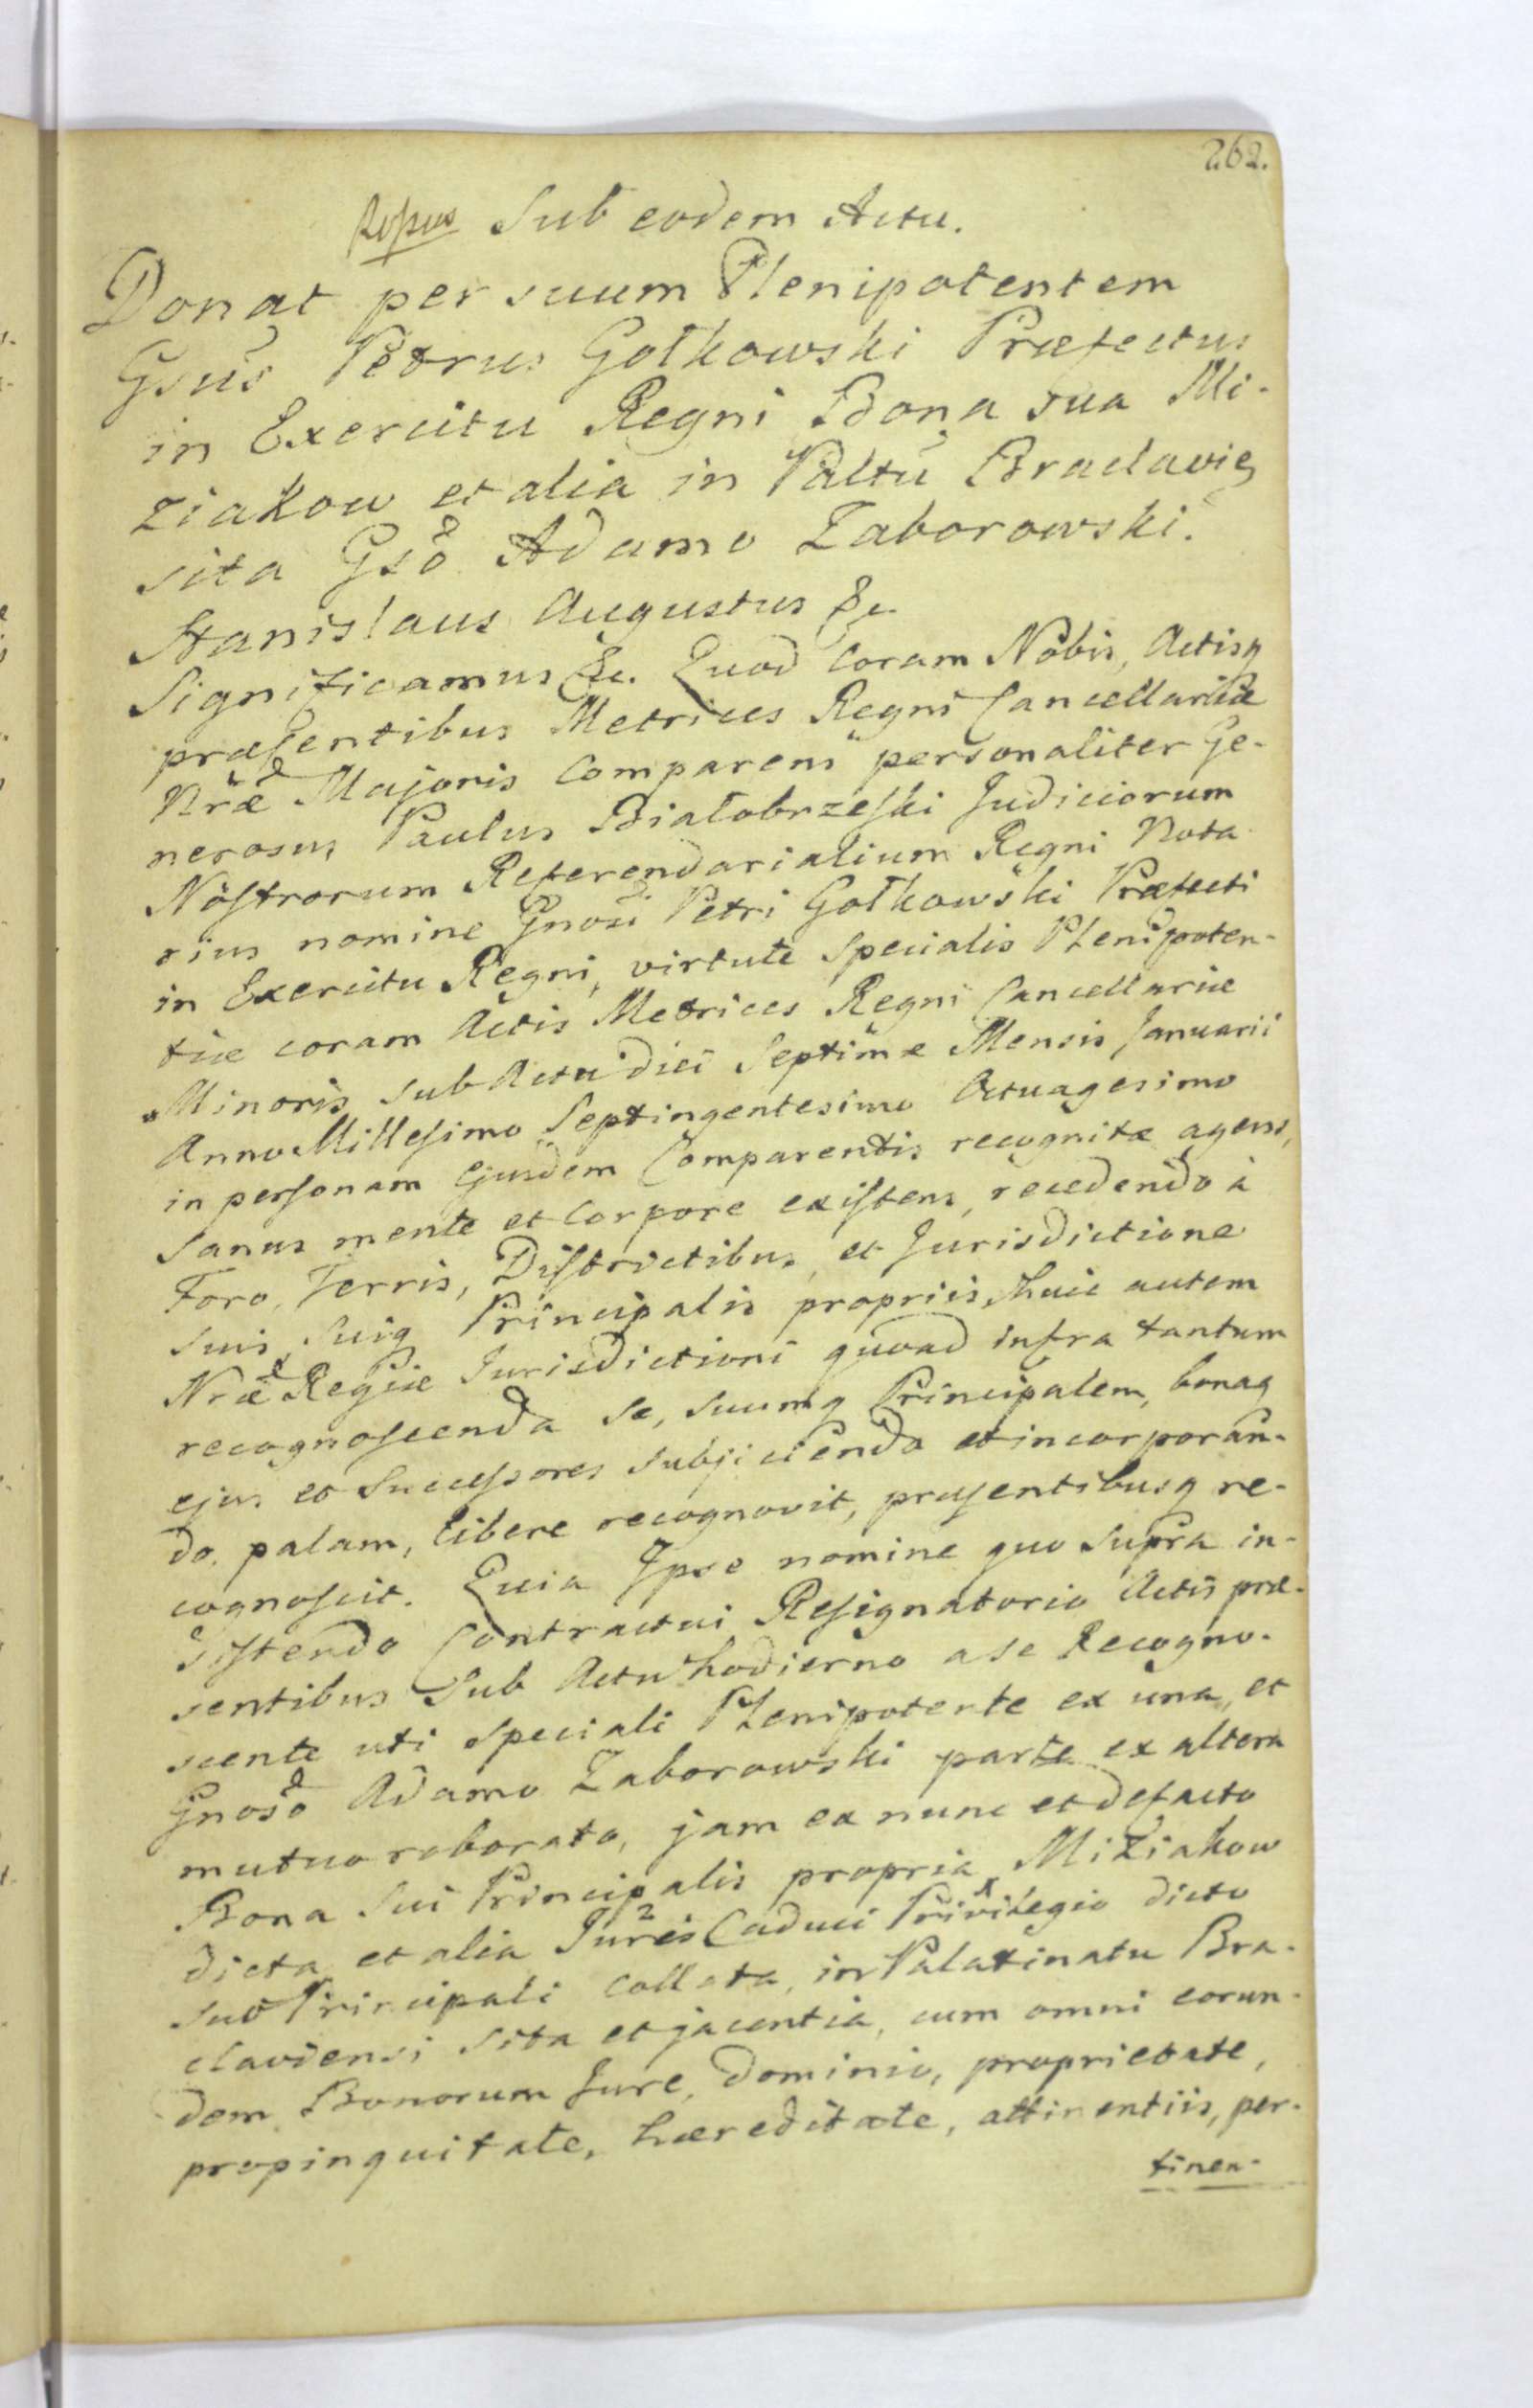 262.
Sub eodem Actu.
Donat per suum Plenipotentem
Gsus Petrus Gołkowski Præfectus
in Exercitu Regni Bona sua Mi-
ziakow et alia in Paltu Braclavię
sita Gso Adamo Zaborowski.
Stanislaus Augustus &c.
Significamus &c. Quod coram Nobis, Actisq
præsentibus Metrices Regni Cancellariæ
Nræ Majoris Comparens personaliter Ge-
nerosus Paulus Białobrzeski Judiciorum
Nostrorum Referendarialium Regni Nota-
rius nomine Gnosi Petri Gołkowski Præfecti
in Exercitu Regni, virtute specialis Plenipoten-
tiæ coram Actis Metrices Regni Cancellariæ
Minoris sub Actu diei Septimæ Mensis Januarii
Anno Millesimo Septingentesimo Octuagesimo
in personam Ejusdem Comparentis recognitæ agens,
Sanus mente et Corpore existens, recedendo à
Foro, Terris, Districtibus, et Jurisdictione
suis, suiq Principalis propriis, huic autem
Nræ Regiæ Jurisdictioni quoad infra tantum
recognoscenda se, suumq Principalem, bonaq
ejus et Successores subjiciendo et incorporan-
do, palam, libere recognovit, præsentibusq re-
cognoscit. Quia Ipse nomine quo supra in-
sistendo Contractui Resignatorio Actis præ-
sentibus Sub Actu hodierno a se Recogno-
scente uti speciali Plenipotente ex una, et
Gnoso Adamo Zaborowski parte ex altera
mutuo roborato, jam ex nunc et de facto
Bona Sui Principalis propria Miziakow
dicta et alia Juris Caduci Privilegio dicto
suo Principali collata, in Palatinatu Bra-
claviensi sita et jacentia, cum omni eorun-
dem Bonorum Jure, dominio, proprietate,
propinquitate, hæreditate, attinentiis, per-
tinen-